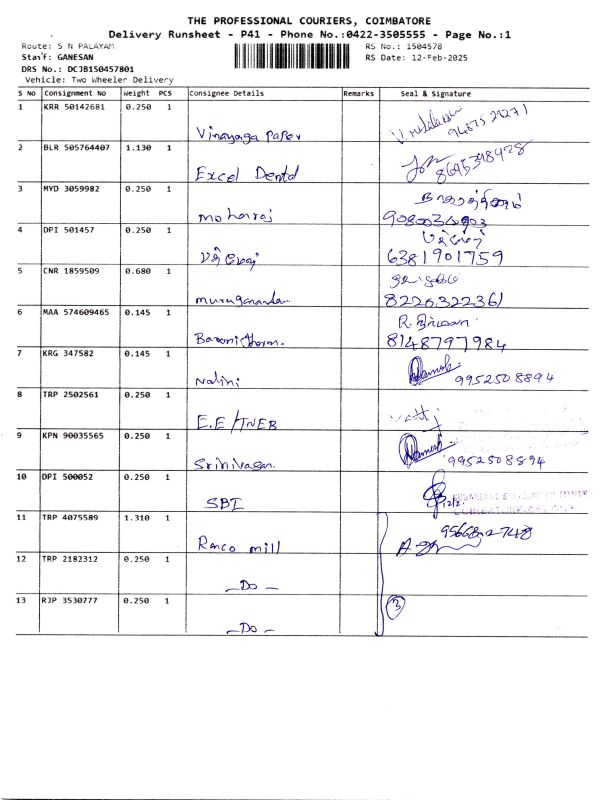 THE PROFESSIONAL COURIERS, COIMBATORE
Delivery Runsheet - P41 - Phone No.:0422-3505555 - Page No.:1
Route: S N PALAYAM RS No.: 1504578
Staff: GANESAN RS Date: 12-Feb-2025
DRS No.: DCJB150457801
Vehicle: Two Wheeler Delivery
S No Consignment No Weight PCS Consignee Details Remarks Seal & Signature
1 KRR 50142681 0.250 1
Vinayaga Paper
2 BLR 505764407 1.130 1
Excel Dental 8695398928
3 MYD 3059982 0.250 1
moharaj
4 DPI 501457 0.250 1
6381901759
5 CNR 1859509 0.680 1
muruganandan 8220322361
6 MAA 574609465 0.145 1
8148797984
7 KRG 347582 0.145 1
Nalini 9952508894
8 TRP 2502561 0.250 1
E.E/TNEB
9 KPN 90035565 0.250 1
Srinivasan 9952508894
10 DPI 500052 0.250 1
SBI 12/2
11 TRP 4075589 1.310 1
Ranco mill
12 TRP 2182312 0.250 1
- Do -
13 RJP 3530777 0.250 1 3
- Do -